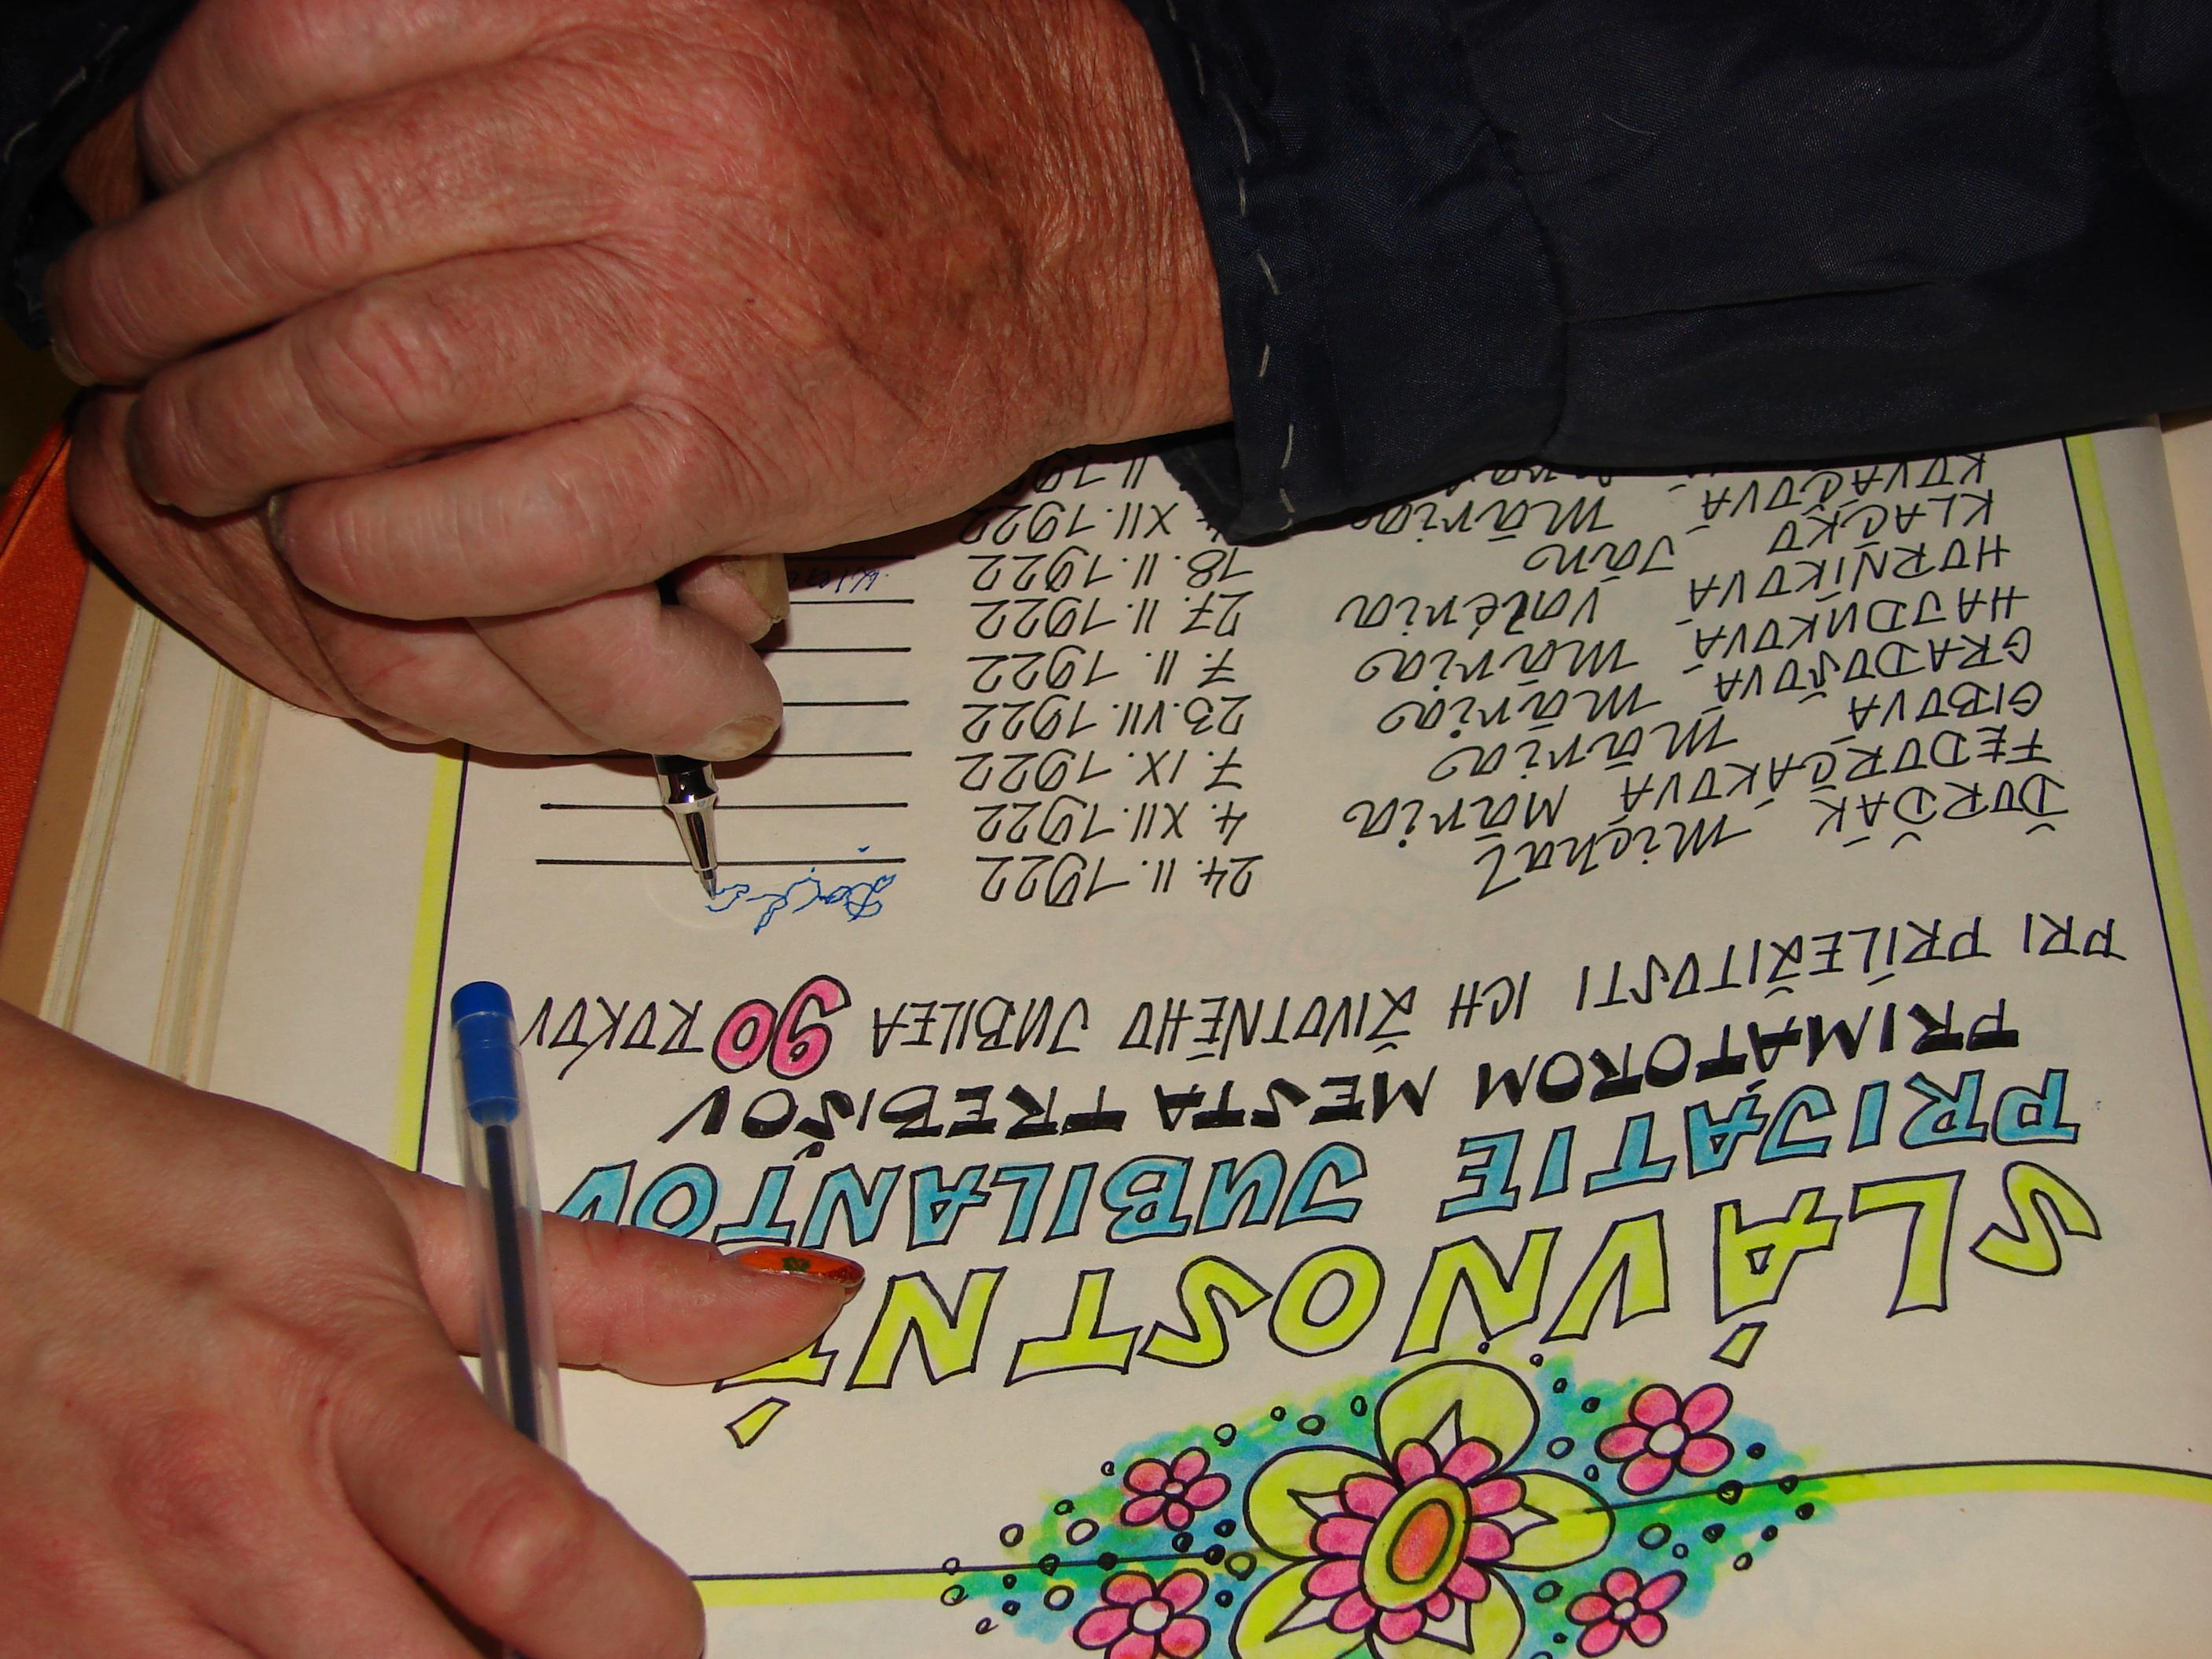 SLÁVNOSTNÍ
PRIJATIE JUBILANTOV
PRIMÁTOROM MESTA TREBIŠOV
PRI PRÍLEŽITOSTI ICH ŽIVOTNÉHO JUBILEA 90 ROKOV
ĎURĎÁK Michal 24. II. 1922
FEDURČÁKOVÁ Mária 4. XII. 1922
GIBOVÁ Mária 7. IX. 1922
GRADOŠOVÁ Mária 23. VII. 1922
HAJDÚKOVÁ Mária 7. II. 1922
HORŇÍKOVÁ Valéria 27. II. 1922
KLAČKO Ján 18. II. 1922
KOVÁČOVÁ Mária XII. 1922